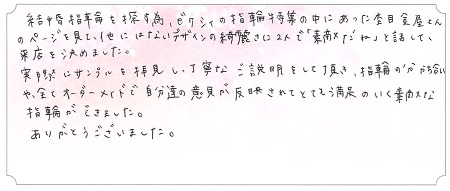 結婚指輪を探す為、ゼクシィの指輪特集の中にあった杢目金屋さん
のページを見て、他にはないデザインの綺麗さに2人で「素敵だね」と話して、
来店を決めました。
実際にサンプルを拝見し、丁寧なご説明をして頂き、指輪の分かち合い
や、全てオーダーメイドで自分達の意見が反映されてとても満足のいく素敵な
指輪ができました。
ありがとうございました。